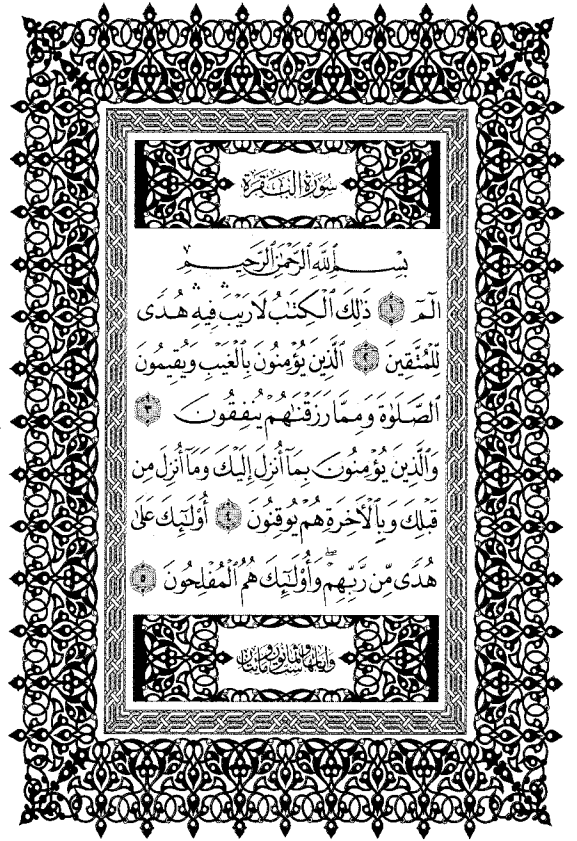 سُورَةُ الْبَقَرَةِ
بِسْمِ ٱللَّهِ ٱلرَّحْمَٰنِ ٱلرَّحِيمِ
الٓمٓ ١ ذَٰلِكَ ٱلْكِتَٰبُ لَا رَيْبَ ۛ فِيهِ ۛ هُدًى
لِّلْمُتَّقِينَ ٢ ٱلَّذِينَ يُؤْمِنُونَ بِٱلْغَيْبِ وَيُقِيمُونَ
ٱلصَّلَوٰةَ وَمِمَّا رَزَقْنَٰهُمْ يُنفِقُونَ ٣
وَٱلَّذِينَ يُؤْمِنُونَ بِمَآ أُنزِلَ إِلَيْكَ وَمَآ أُنزِلَ مِن
قَبْلِكَ وَبِٱلْأَخِرَةِ هُمْ يُوقِنُونَ ٤ أُو۟لَٰٓئِكَ عَلَىٰ
هُدًى مِّن رَّبِّهِمْ ۖ وَأُو۟لَٰٓئِكَ هُمُ ٱلْمُفْلِحُونَ ٥
وَآيَاتُهَا مِائَتَانِ وَسِتٌّ وَثَمَانُونَ